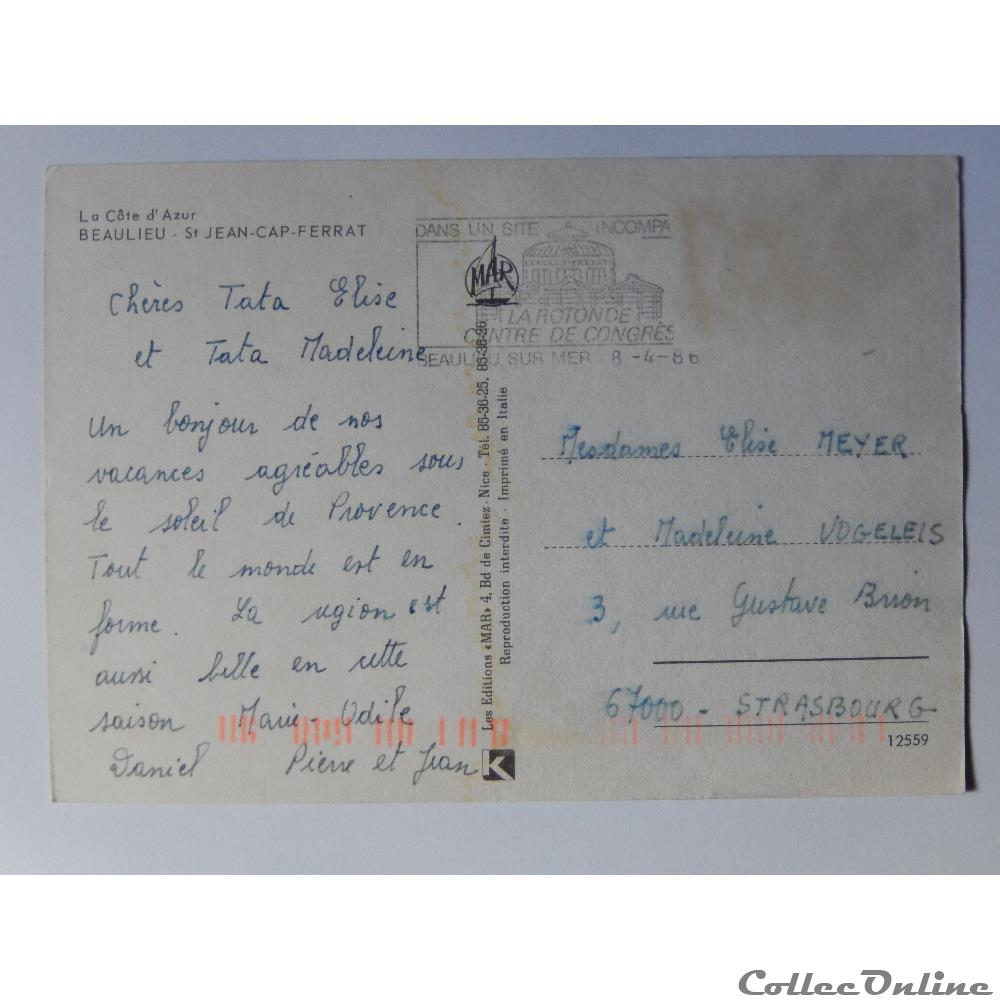 La Côte d'Azur
BEAULIEU - St JEAN-CAP-FERRAT
DANS UN SITE INCOMPA
MAR
LA ROTONDE
CENTRE DE CONGRÈS
BEAULIEU SUR MER 8 -4 -86
Chères Tata Elise
et Tata Madeleine
Un bonjour de nos
vacances agréables sous
le soleil de Provence.
Tout le monde est en
forme. La région est
aussi belle en cette
saison Marie-Odile
Daniel Pierre et Jean
Les Editions «MAR» 4, Bd de Cimiez - Nice - Tél. 85-36-25, 85-36-26
Reproduction interdite - Imprimé en Italie
K
Mesdames Elise MEYER
et Madeleine VOGELEIS
3, rue Gustave Brion
67000 - STRASBOURG
12559
CollecOnline